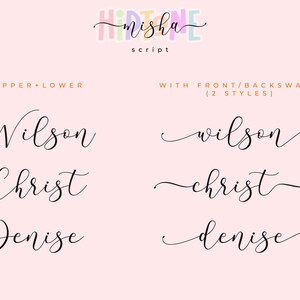 HIPTONE
misha
script
UPPER+LOWER
WITH FRONT/BACKSWA
(2 STYLES)
Wilson
wilson
Christ
christ
Denise
denise